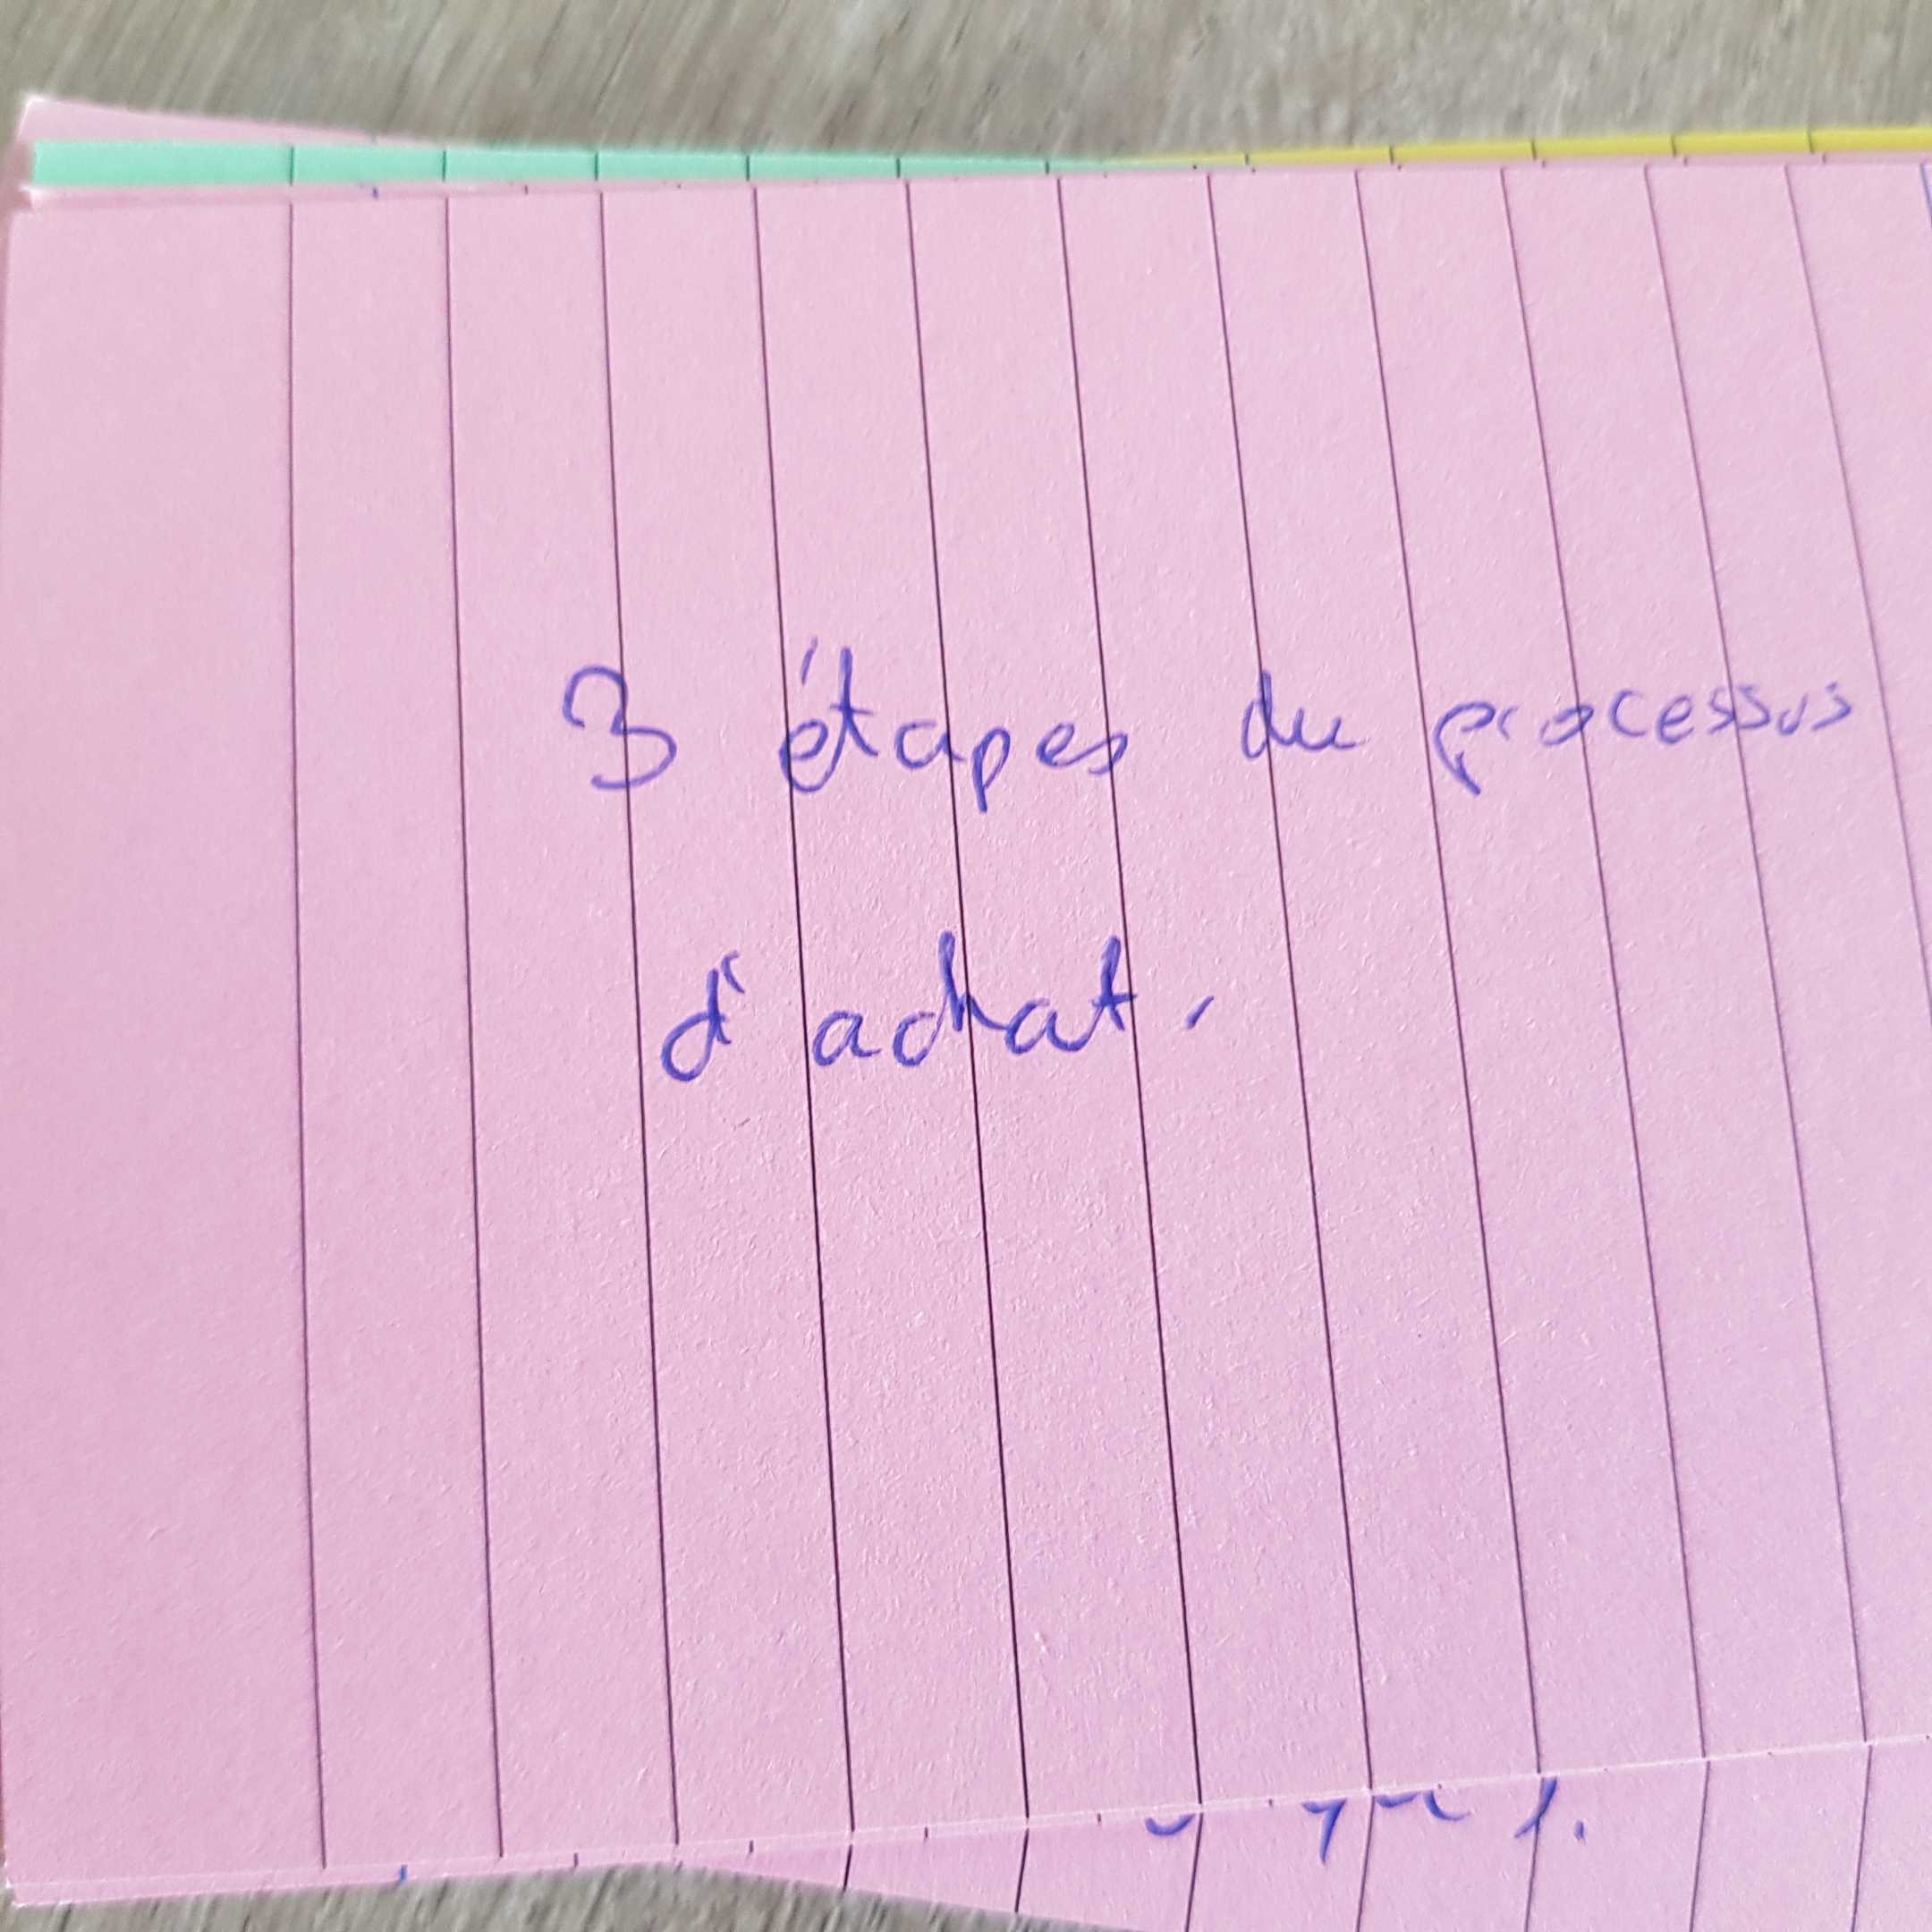 3 étapes du processus
d'achat.